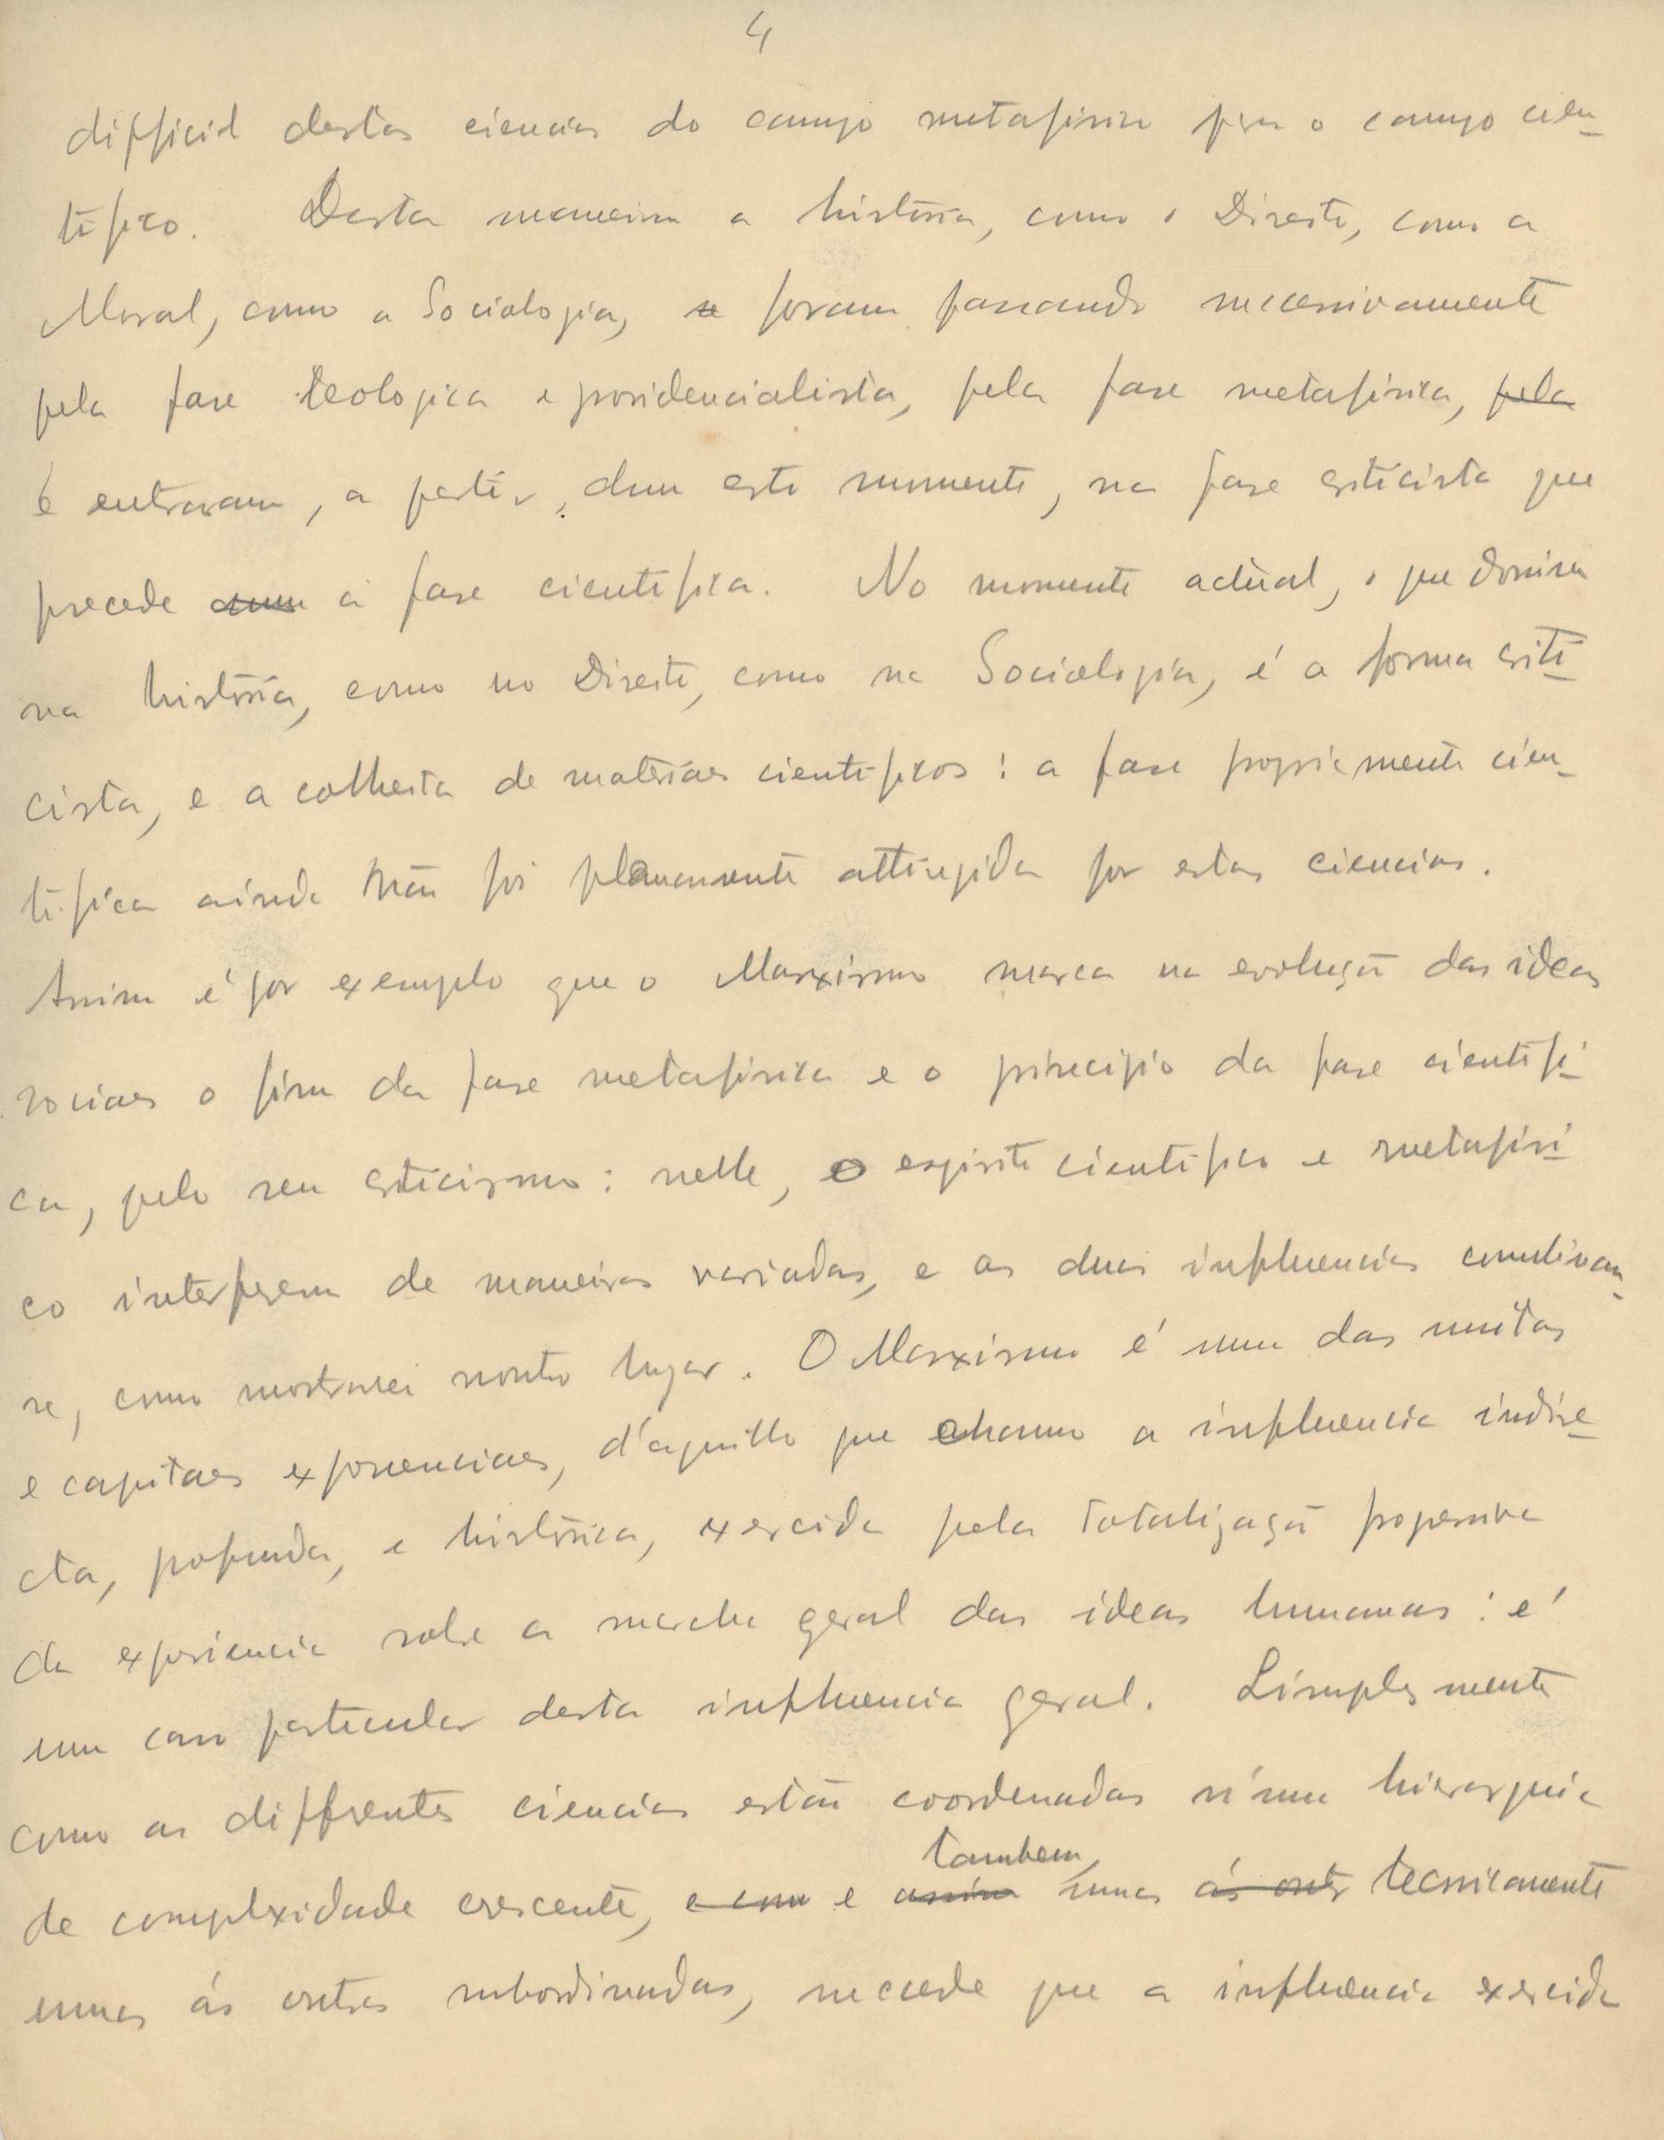 4
difficil destas ciencias do campo metafisico para o campo cien-
tifico. Desta maneira a história, como o Direito, como a
Moral, como a Sociologia, se foram passando successivamente
pela fase teologica e providencialista, pela fase metafisica, pela
e entraram, a partir, dum certo momento, na fase criticista que
precede a fase cientifica. No momento actual, o que domina
na história, como no Direito, como na Sociologia, é a forma criti-
cista, e a colheita de materiaes cientificos: a fase propriamente cien-
tifica ainda não foi planamente attingida por estas ciencias.
Assim é por exemplo que o Marxismo marca na evolução das ideas
sociaes o fim da fase metafisica e o principio da fase cientifi-
ca, pelo seu criticismo: nelle, o espirito cientifico e metafisi-
co interferem de maneiras variadas, e as duas influencias
se, como mostrarei noutro lugar. O Marxismo é uma das muitas
e capitaes exponenciaes, d'aquillo que chamo a influencia indire-
cta, profunda, e histórica, exercida pela totalização progressiva
da experiencia sobre a marcha geral das ideas humanas: é
um caso particular desta influencia geral. Simplesmente
como as differentes ciencias estão coordenadas n'uma hierarquia
de complexidade crescente, e com e assim tambem umas ás outr tecnicamente
umas ás outras subordinadas, succede que a influencia exercida